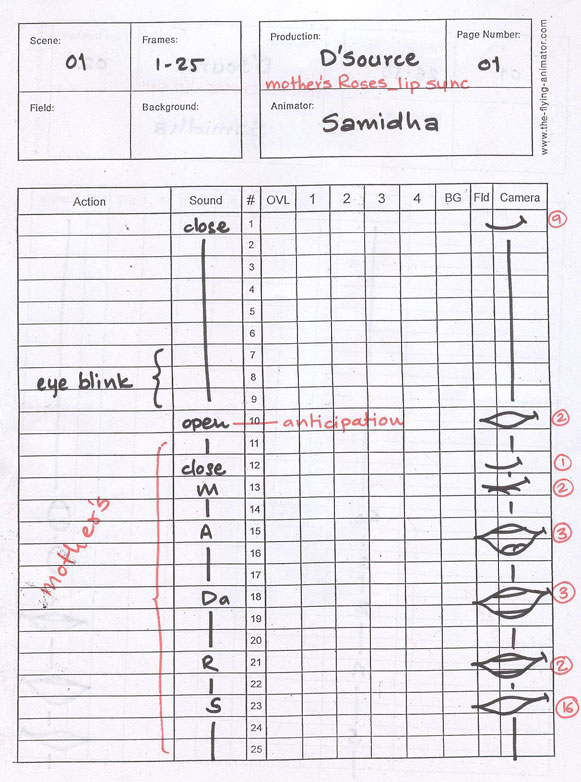 Scene: Frames: Production: Page Number:
01 1-25 D'Source 01
mother's Roses_lip sync
Field: Background: Animator:
Samidha
www.the-flying-animator.com
Action Sound # OVL 1 2 3 4 BG Fld Camera
close 1 9
2
3
4
5
6
7
eye blink 8
9
open 10 anticipation 2
11
close 12 1
m 13 2
14
A 15 3
16
17
mother's
Da 18 3
19
20
R 21 2
22
S 23 16
24
25